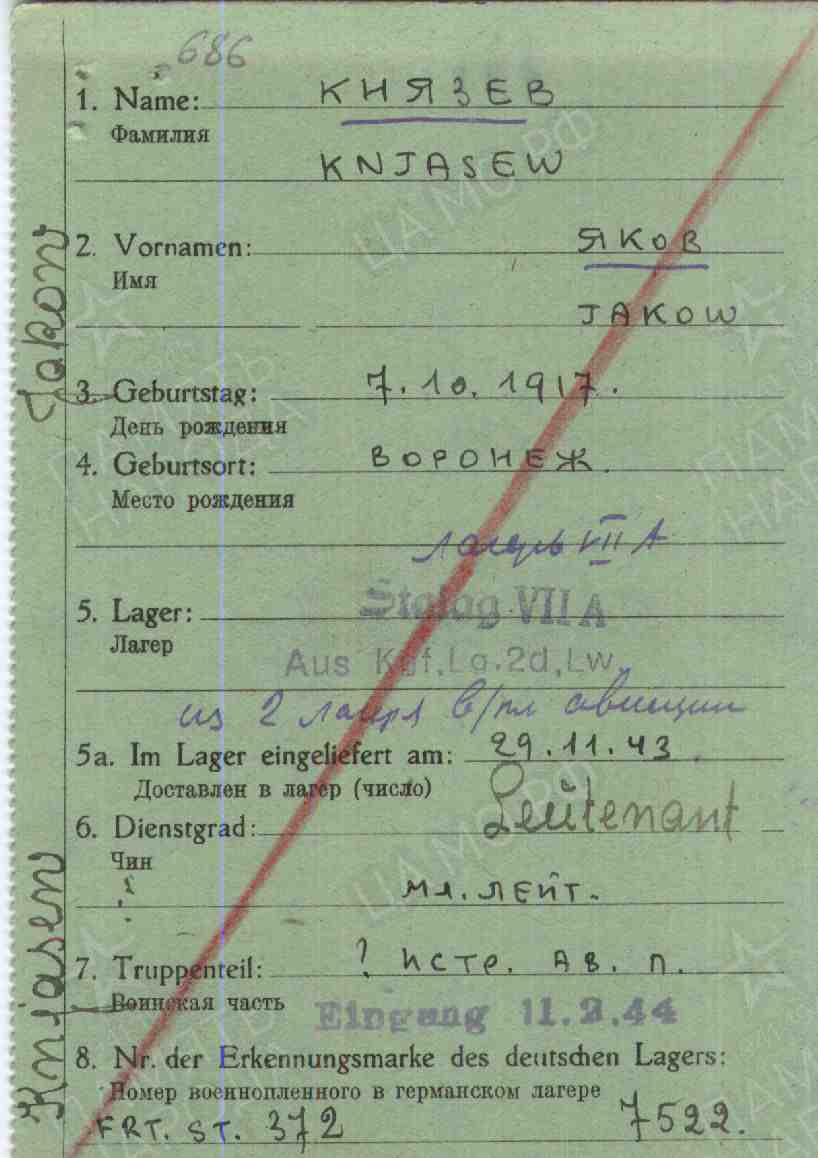 686
1. Name: КНЯЗЕВ
Фамилия
KNJASEW
2. Vornamen: ЯКОВ
Имя
JAKOW
3. Geburtstag: 7.10.1917.
День рождения
4. Geburtsort: ВОРОНЕЖ.
Место рождения
лагерь VII A
5. Lager: Stalag VII A
Лагер
Aus Kgf.Lg.2d.Lw.
из 2 лагеря в/пл авиации
5a. Im Lager eingeliefert am: 29.11.43.
Доставлен в лагер (число)
6. Dienstgrad: Leutenant
Чин
? МЛ. ЛЕЙТ.
7. Truppenteil: ? ИСТР. АВ. П.
Воинская часть
Eingang 11.2.44
8. Nr. der Erkennungsmarke des deutschen Lagers:
Номер военнопленного в германском лагере
FRT. ST. 372 7522.
Knjasew
Jakow
ЦАМО РФ
ЦАМО РФ